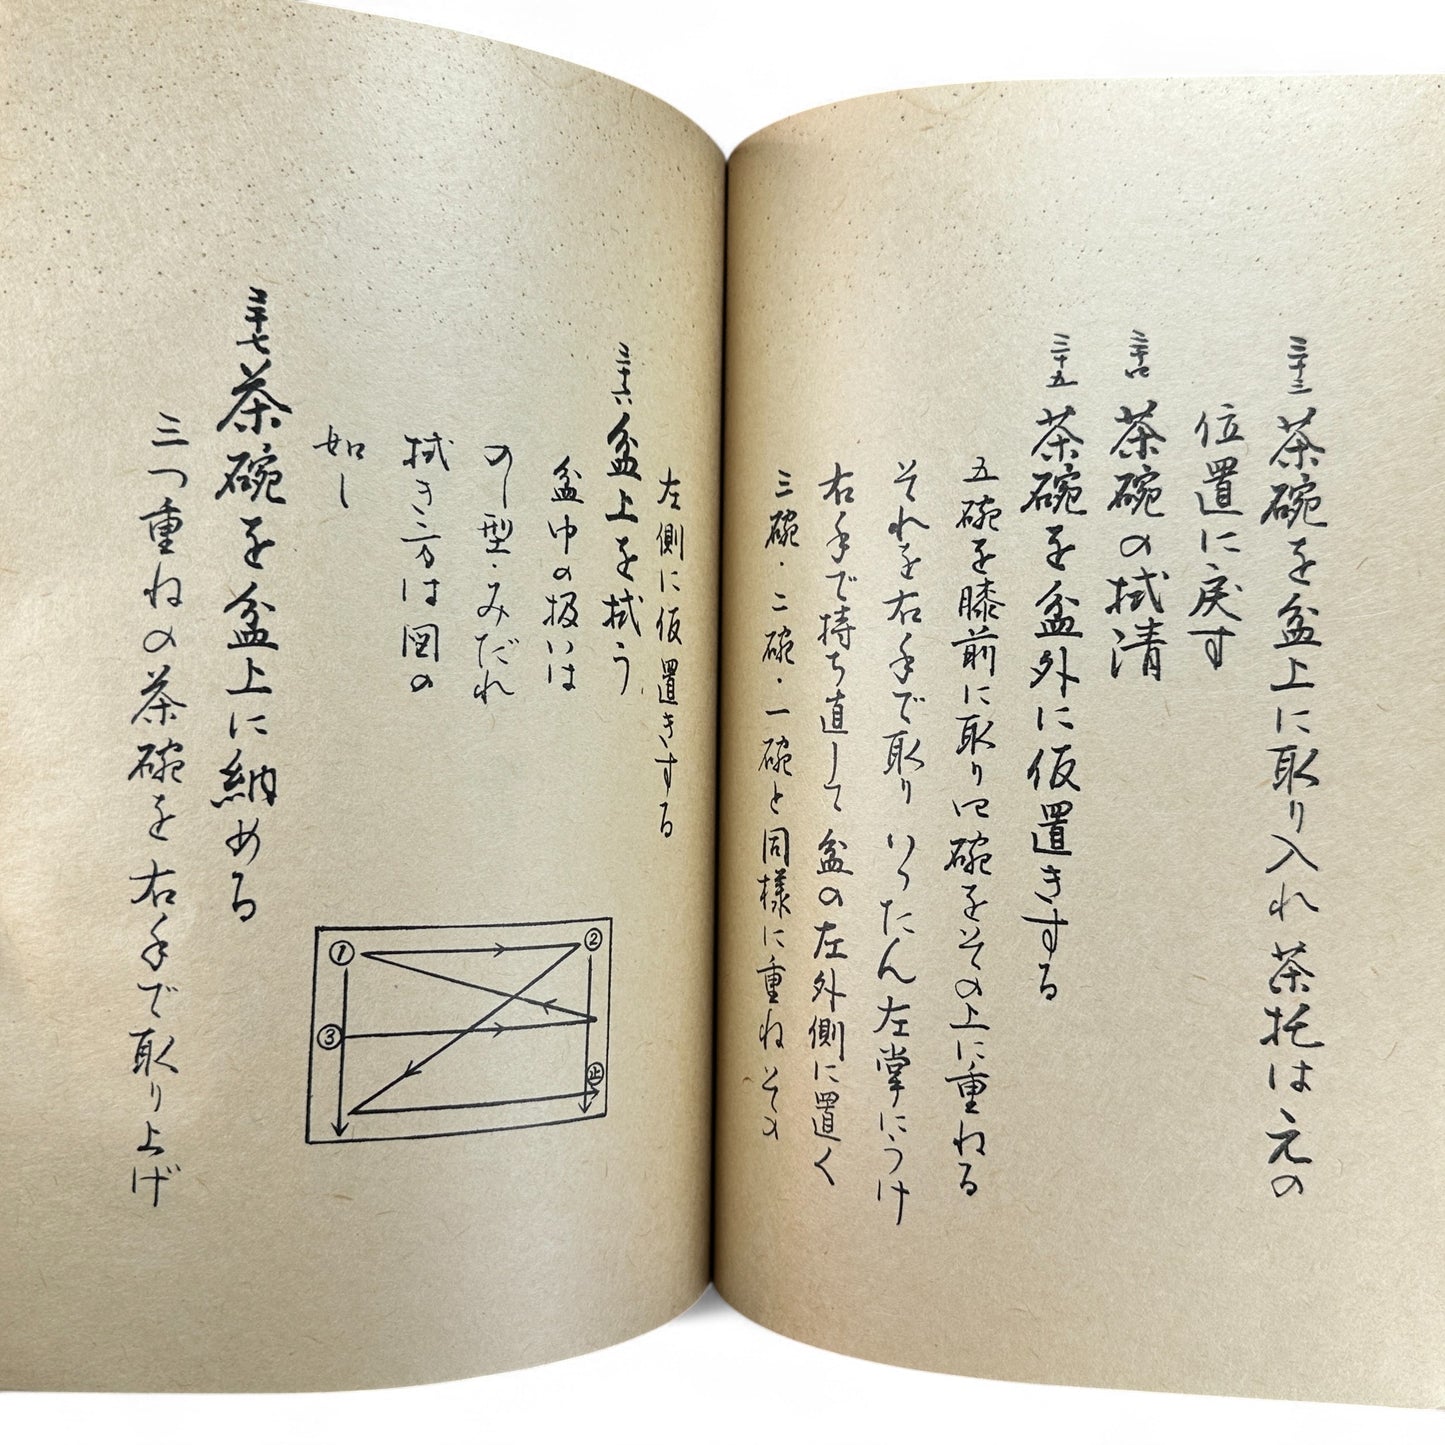 三十三 茶碗を盆上に取り入れ 茶托は元の
位置に戻す
三十四 茶碗の拭清
三十五 茶碗を盆外に仮置きする
五碗を膝前に取り四碗をその上に重ねる
それを右手で取り いったん左掌にうけ
右手で持ち直して 盆の左外側に置く
三碗・二碗・一碗と同様に重ね その
左側に仮置きする
三十六 盆上を拭う
盆巾の扱いは
のし型・みだれ
拭き方は図の
如し
①
②
③
止
三十七 茶碗を盆上に納める
三つ重ねの茶碗を右手で取り上げ